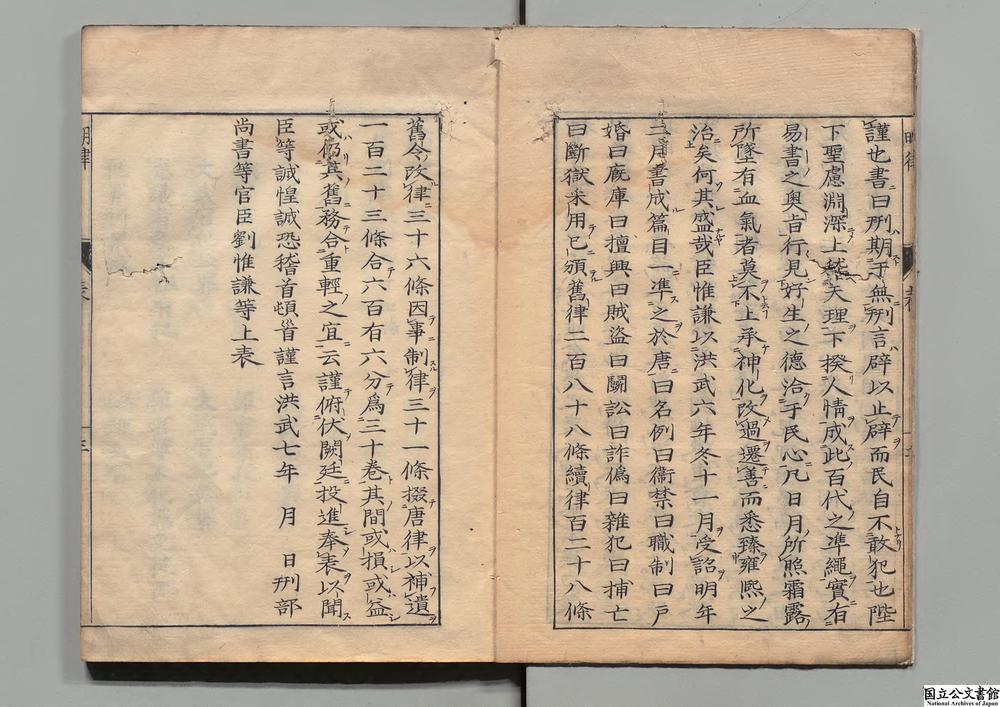 謹也書曰刑期于無刑言辟以止辟而民自不敢犯也陛
下聖慮淵深上稽天理下揆人情成此百代之準繩實有
易書之奧旨行見好生之德洽于民心凡日月所照霜露
所墜有血氣者莫不上承神化改過遷善而悉臻雍熙之
治矣何其盛哉臣惟謙以洪武六年冬十一月受詔明年
二月書成篇目一準之於唐曰名例曰衞禁曰職制曰戶
婚曰廐庫曰擅興曰賊盜曰鬬訟曰詐僞曰雜犯曰捕亡
曰斷獄采用已頒舊律二百八十八條續律百二十八條
舊令改律三十六條因事制律三十一條掇唐律以補遺
一百二十三條合六百有六分爲三十卷其間或損或益
或仍其舊務合重輕之宜云謹俯伏闕廷投進奉表以聞
臣等誠惶誠恐稽首頓首謹言洪武七年 月 日刑部
尚書等官臣劉惟謙等上表
明律 表 三
国立公文書館
National Archives of Japan